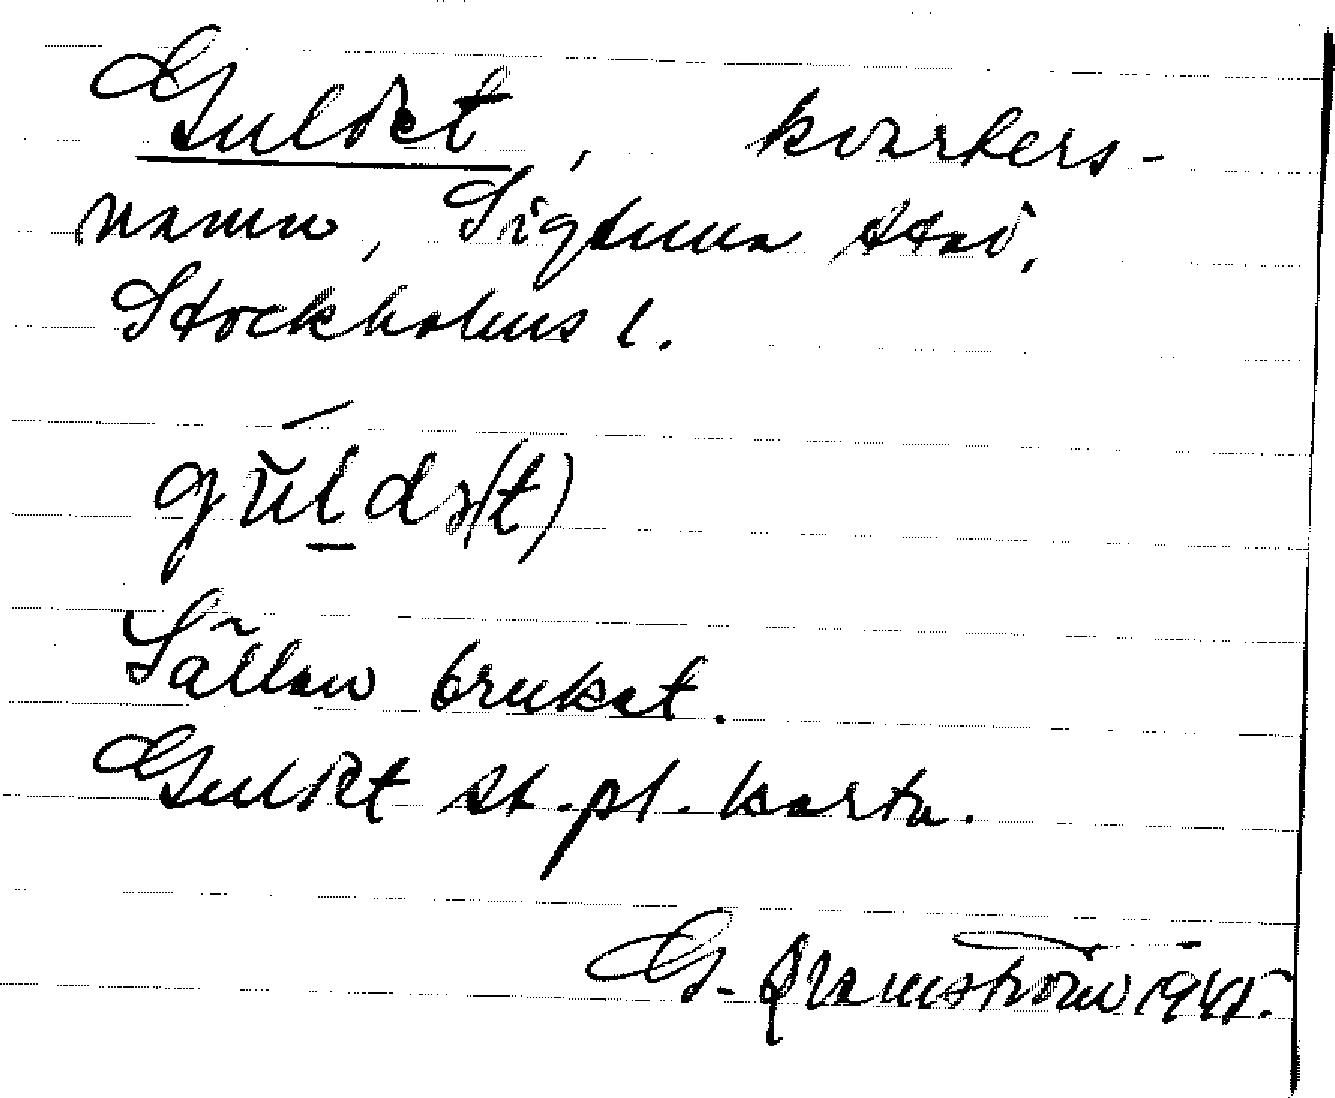 Guldet, kvarters-
namn, Sigtuna stad,
Stockholms l.
gŭldə(t)
Sällan brukat.
Guldet st.pl. karta.
G. Framström 1945.